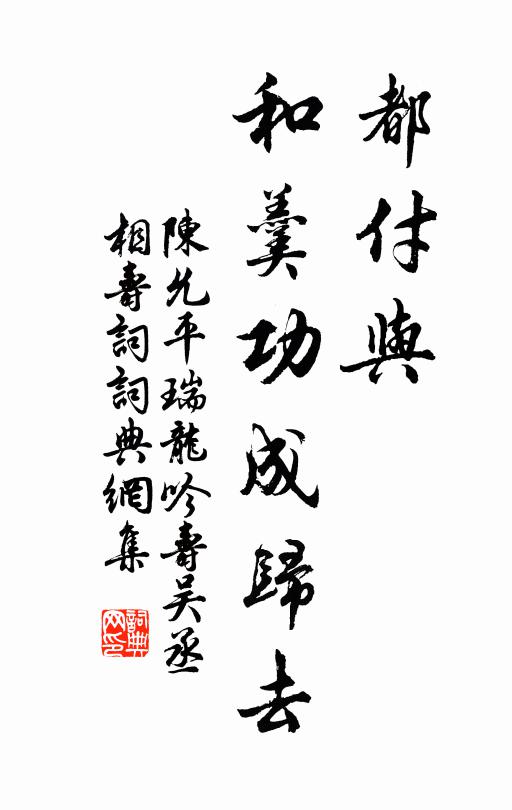 都付與
和羹功成歸去
陳允平瑞龍吟壽吳丞
相壽詞詞典網集
詞典
网印